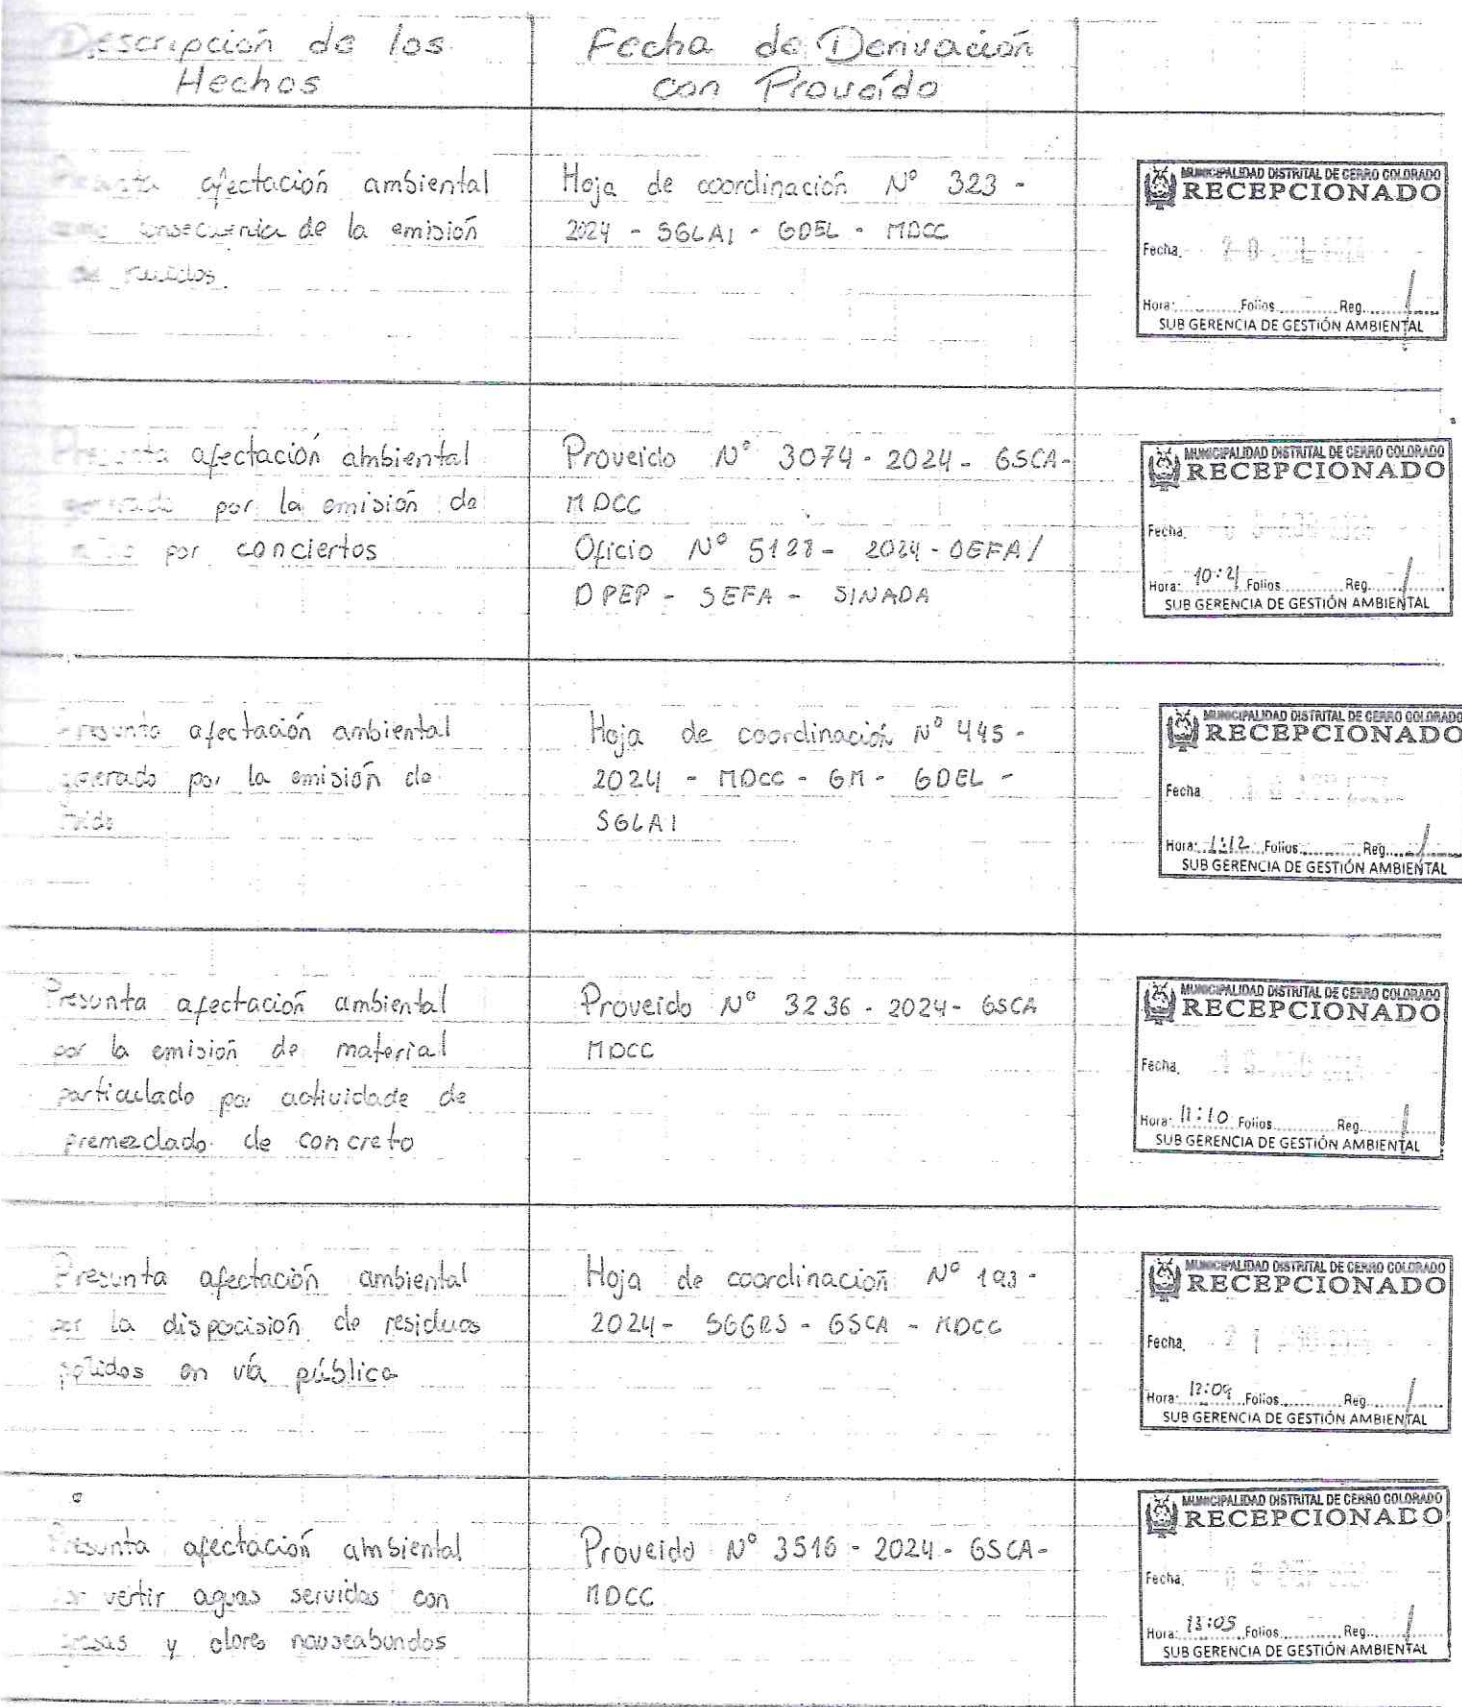 Descripción de los
Hechos
Fecha de Derivación
con Proveído
Presunta afectación ambiental
como consecuencia de la emisión
de ruidos.
Hoja de coordinación N° 323 -
2024 - SGLAI - GDEL - MDCC
MUNICIPALIDAD DISTRITAL DE CERRO COLORADO
RECEPCIONADO
Fecha. 20 JUL
Hora: Folios Reg.
SUB GERENCIA DE GESTIÓN AMBIENTAL
Presunta afectación ambiental
generado por la emisión de
por conciertos
Proveido N° 3074 - 2024 - GSCA-
MDCC
Oficio N° 5128 - 2024 - OEFA/
DPEP - SEFA - SINADA
MUNICIPALIDAD DISTRITAL DE CERRO COLORADO
RECEPCIONADO
Fecha.
Hora: 10:21 Folios Reg.
SUB GERENCIA DE GESTIÓN AMBIENTAL
Presunta afectación ambiental
generado por la emisión de
ruido
Hoja de coordinación N° 445 -
2024 - MDCC - GM - GDEL -
SGLAI
MUNICIPALIDAD DISTRITAL DE CERRO COLORADO
RECEPCIONADO
Fecha
Hora: 1:12 Folios Reg.
SUB GERENCIA DE GESTIÓN AMBIENTAL
Presunta afectación ambiental
por la emisión de material
particulado por actividade de
premezclado de concreto
Proveido N° 3236 - 2024 - GSCA
MDCC
MUNICIPALIDAD DISTRITAL DE CERRO COLORADO
RECEPCIONADO
Fecha.
Hora: 11:10 Folios Reg.
SUB GERENCIA DE GESTIÓN AMBIENTAL
Presunta afectación ambiental
por la dispocisión de residuos
solidos en vía pública
Hoja de coordinación N° 193 -
2024 - SGGRS - GSCA - MDCC
MUNICIPALIDAD DISTRITAL DE CERRO COLORADO
RECEPCIONADO
Fecha. 21
Hora: 12:09 Folios Reg.
SUB GERENCIA DE GESTIÓN AMBIENTAL
Presunta afectación ambiental
por vertir aguas servidas con
grasas y olores nauseabundos
Proveido N° 3516 - 2024 - GSCA-
MDCC
MUNICIPALIDAD DISTRITAL DE CERRO COLORADO
RECEPCIONADO
Fecha.
Hora: 13:05 Folios Reg.
SUB GERENCIA DE GESTIÓN AMBIENTAL